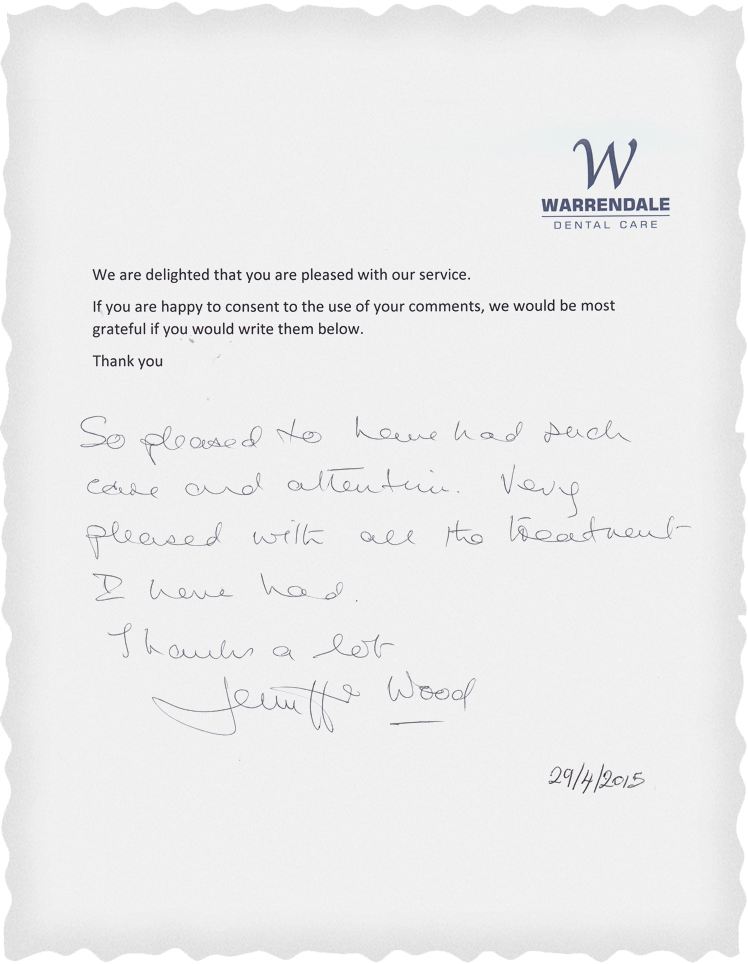 W
WARRENDALE
DENTAL CARE
We are delighted that you are pleased with our service.
If you are happy to consent to the use of your comments, we would be most
grateful if you would write them below.
Thank you
So pleased to have had such
care and attention. Very
pleased with all the treatment
I have had.
Thanks a lot
Jeniffer Wood
29/4/2015